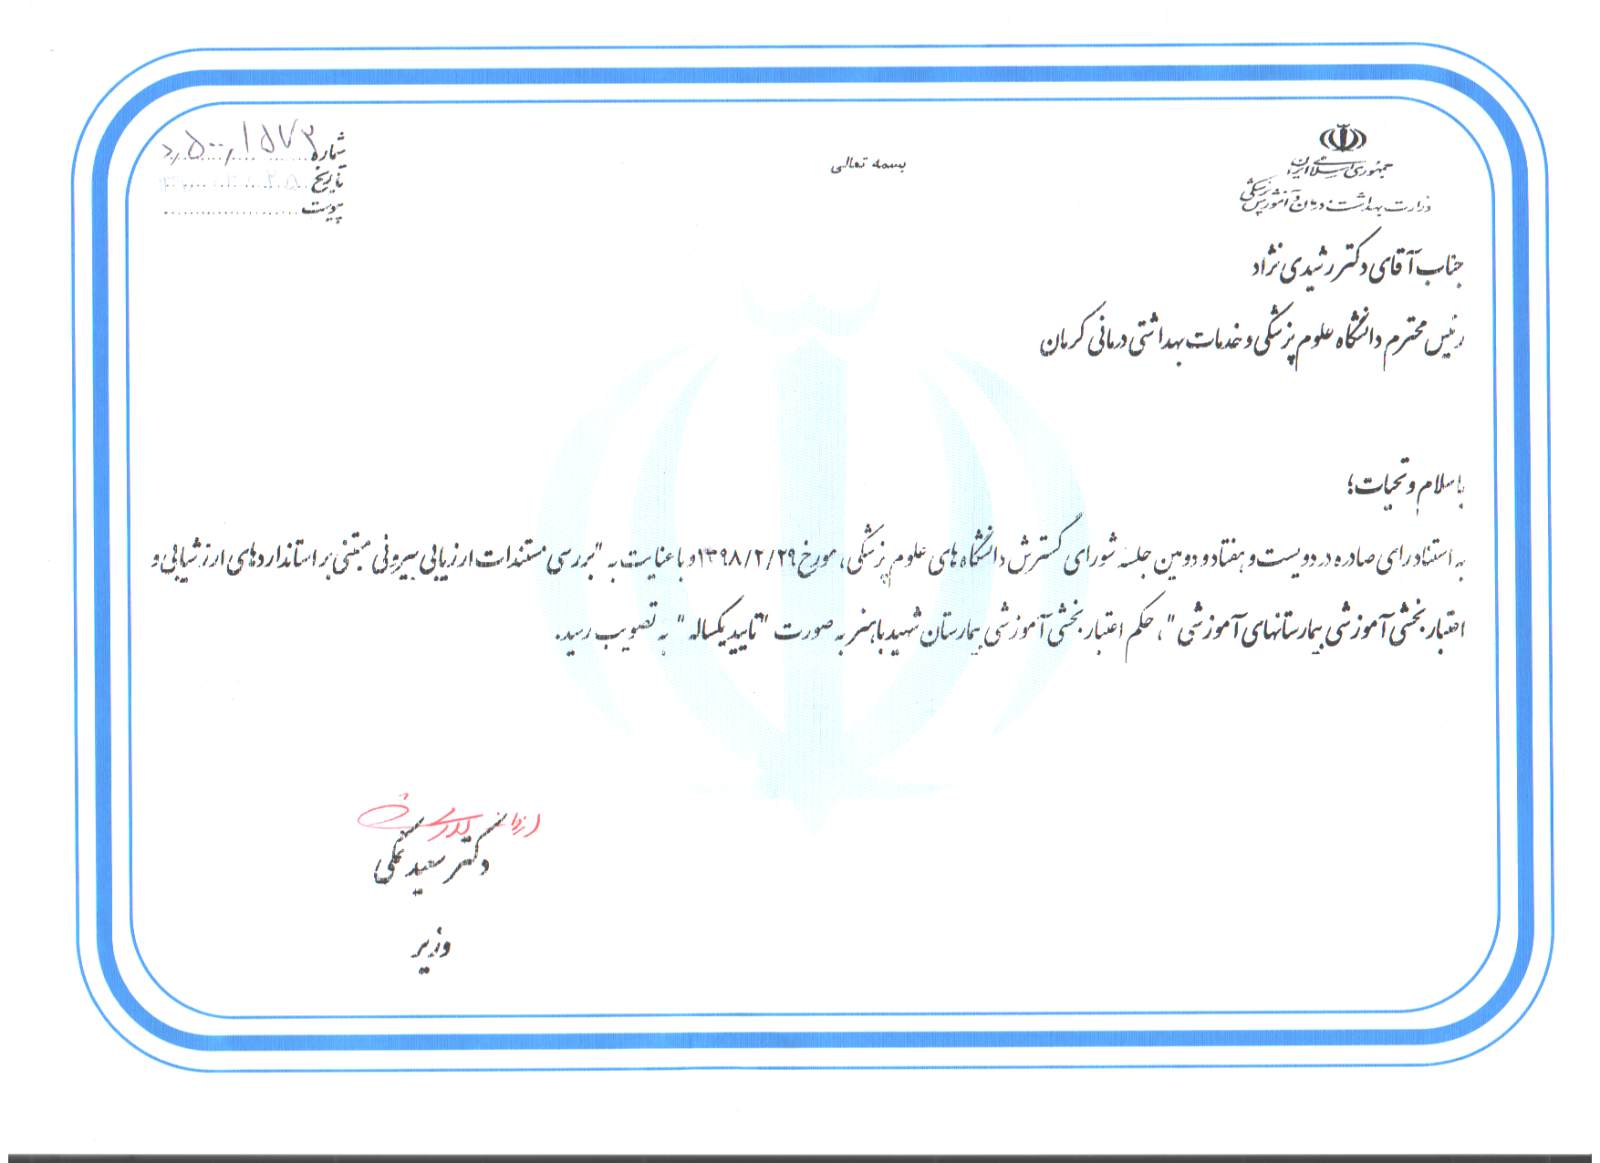 بسمه تعالی
جمهوری اسلامی ایران
وزارت بهداشت درمان و آموزش پزشکی
شماره
تاریخ
پیوست
جناب آقای دکتر رشیدی نژاد
رئیس محترم دانشگاه علوم پزشکی و خدمات بهداشتی درمانی کرمان
با سلام و تحیات؛
به استناد رای صادره در دویست و هفتاد و دومین جلسه شورای گسترش دانشگاه های علوم پزشکی، مورخ ۱۳۹۸/۲/۲۹ و با عنایت به "بررسی مستندات ارزیابی بیرونی مبتنی بر استانداردهای ارزشیابی و
اعتبار بخشی آموزشی بیمارستانهای آموزشی"، حکم اعتبار بخشی آموزشی بیمارستان شهید باهنر به صورت "تایید یکساله" به تصویب رسید.
دکتر سعید نمکی
وزیر